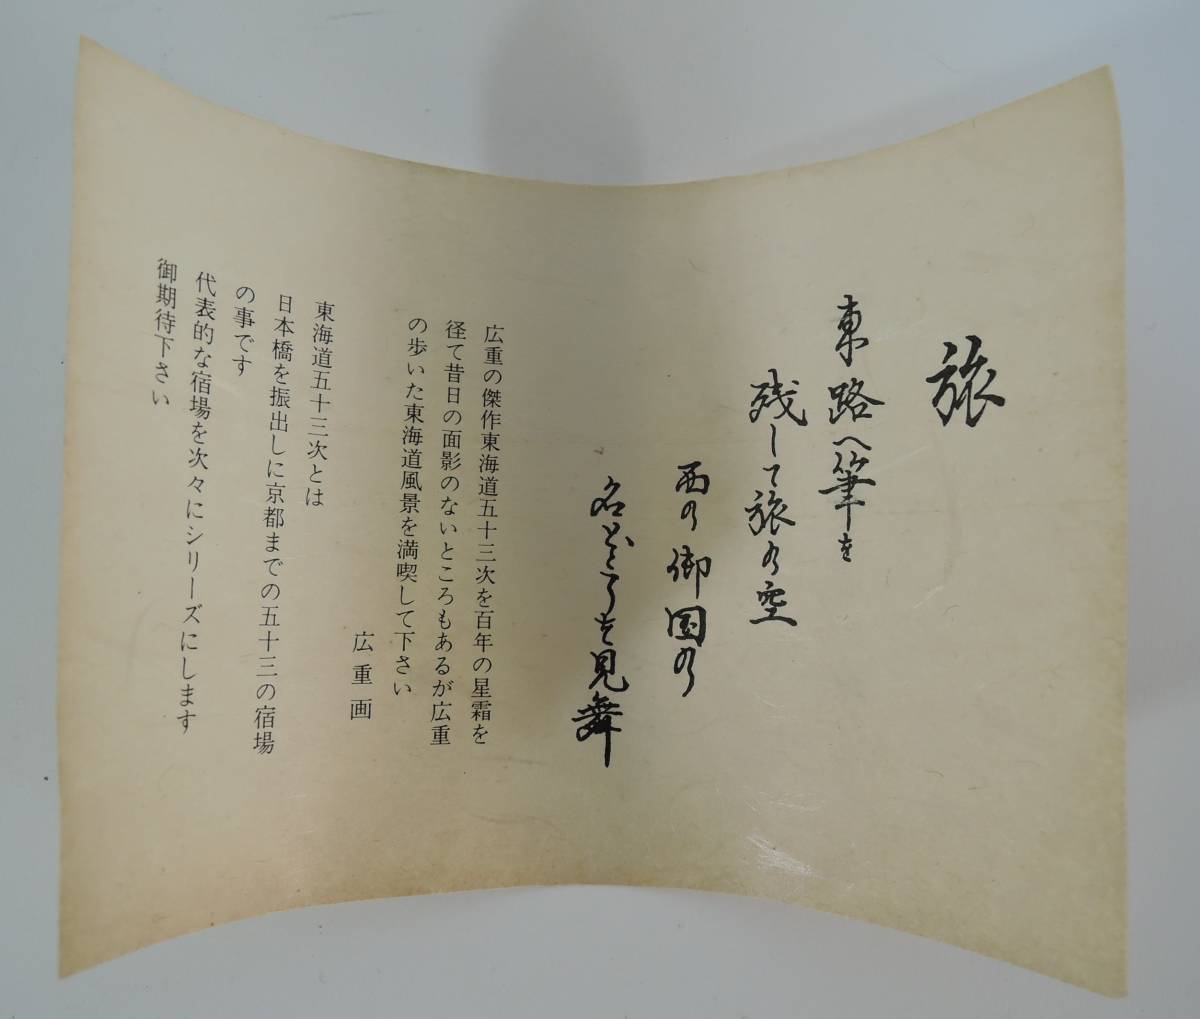 旅
東路へ筆を
残して旅の空
西の御国の
名ところを見舞
広重の傑作東海道五十三次を百年の星霜を
径て昔日の面影のないところもあるが広重
の歩いた東海道風景を満喫して下さい
広重画
東海道五十三次とは
日本橋を振出しに京都までの五十三の宿場
の事です
代表的な宿場を次々にシリーズにします
御期待下さい